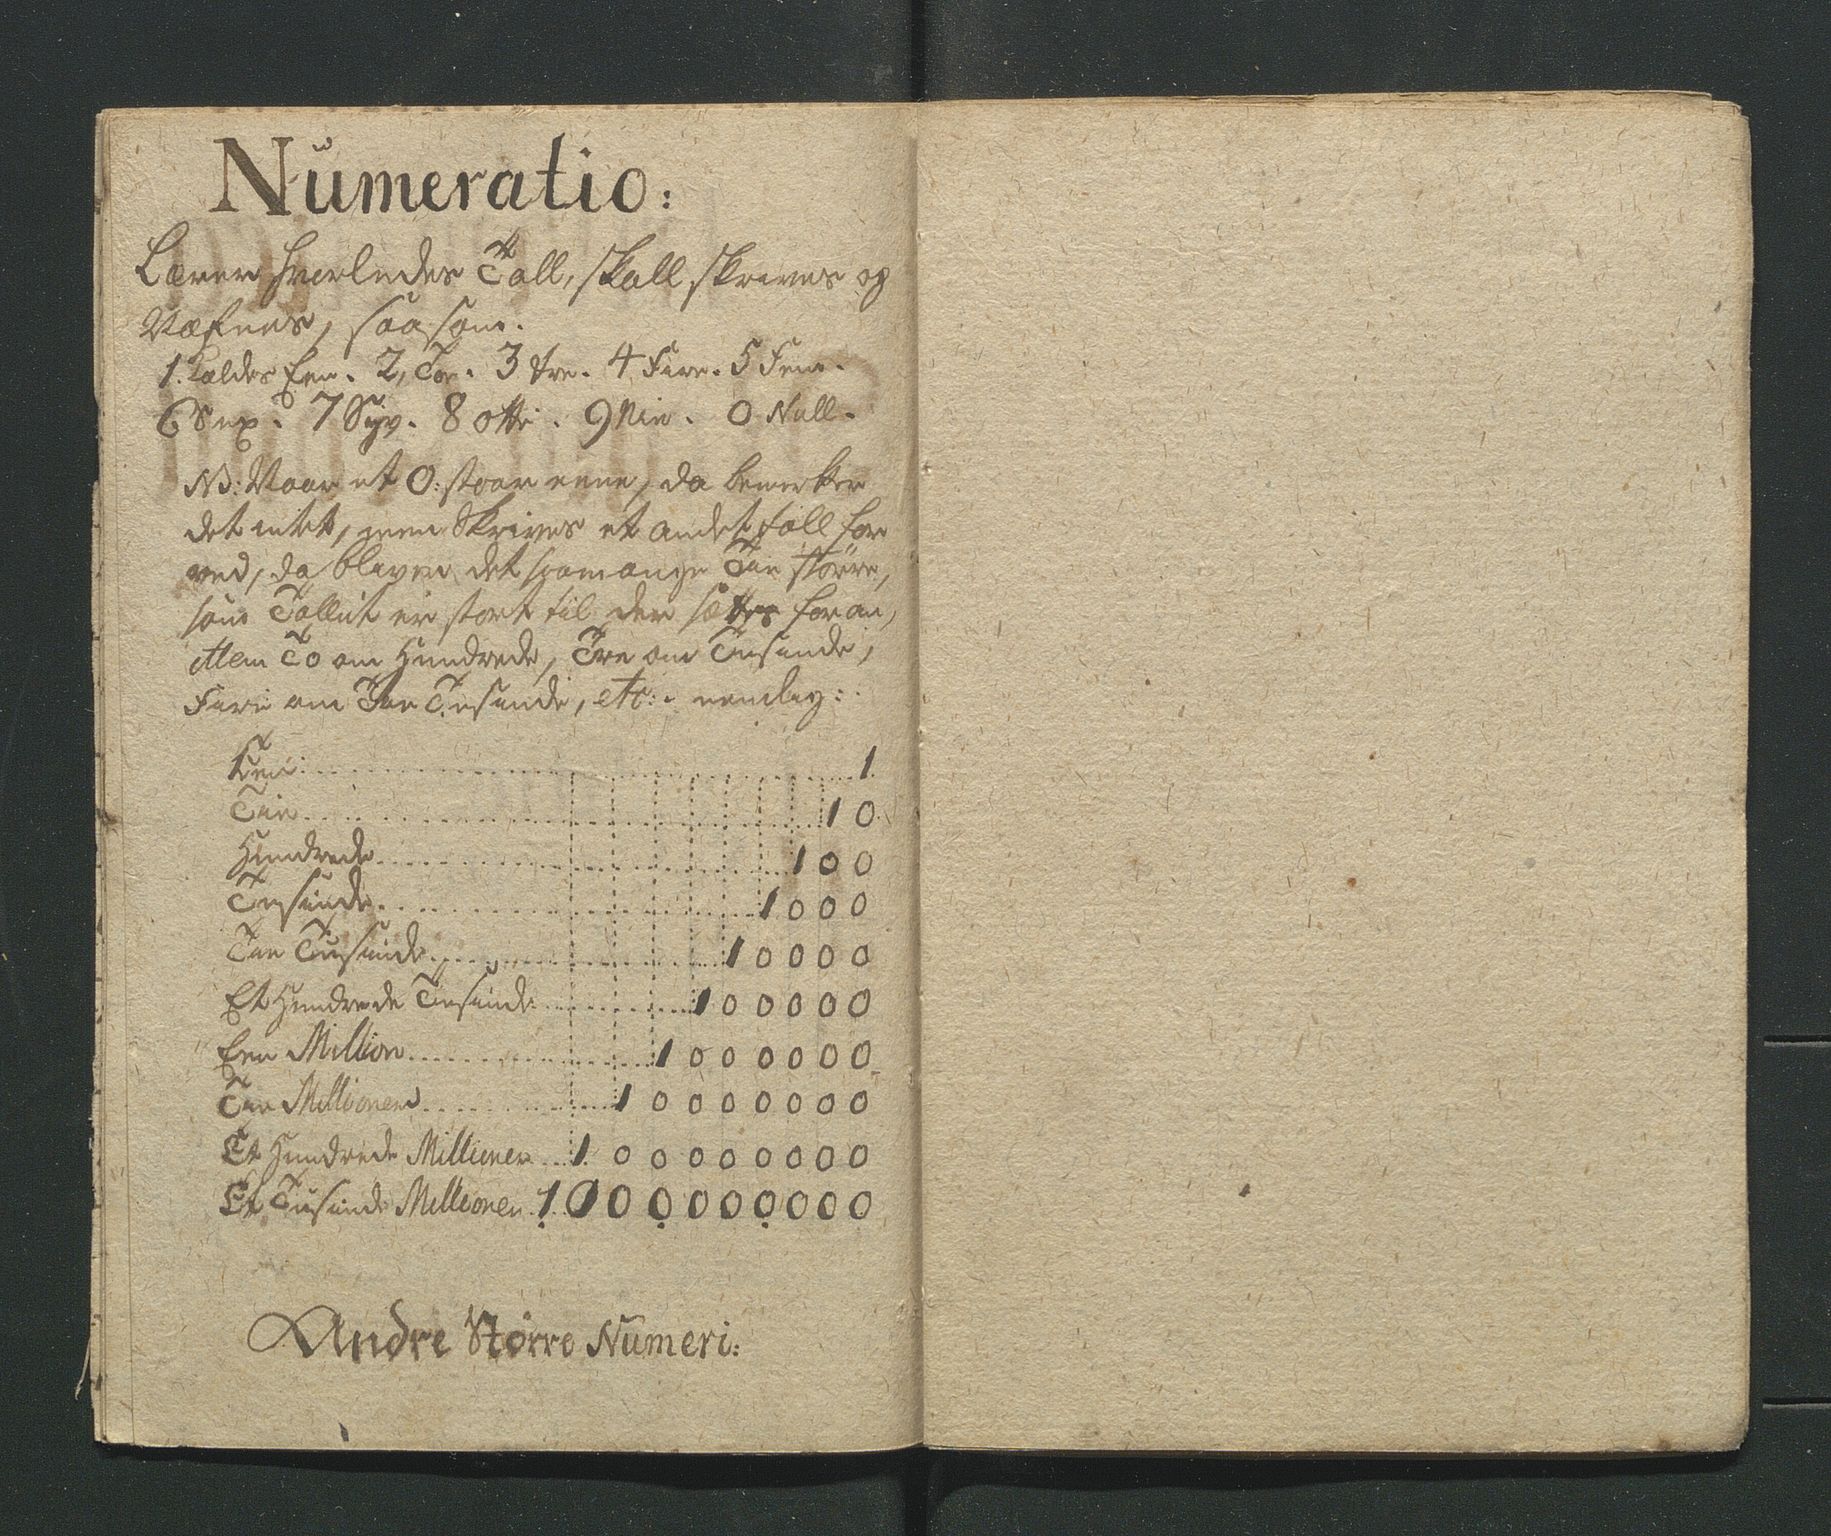 Numeratio:
Lærer hvorledes Tall, skall skrives og
Næfnes, saasom.
1. Kaldes Een. 2, Toe. 3 tre. 4 Fire. 5 Fem.
6 Sex. 7 Syv. 8 otte. 9 Nie. 0 Null.
NB: Naar et 0: staar ene, da bemerker
det intet, men Skrives et andet tall for
ved, da bliver det saamange Tie større,
som Tallet er stort til der sættes foran,
Men To om Hundrede, Tre om Tusinde,
Fire om Tie Tusinde, etc: nemlig:
Een 1
Tie 10
Hundrede 100
Tusinde 1000
Tie Tusinde 10000
Et Hundrede Tusinde 100000
Een Million 1000000
Tie Millioner 10000000
Et Hundrede Millioner 100000000
Et Tusinde Millioner 1000000000
Andre Større Numeri: